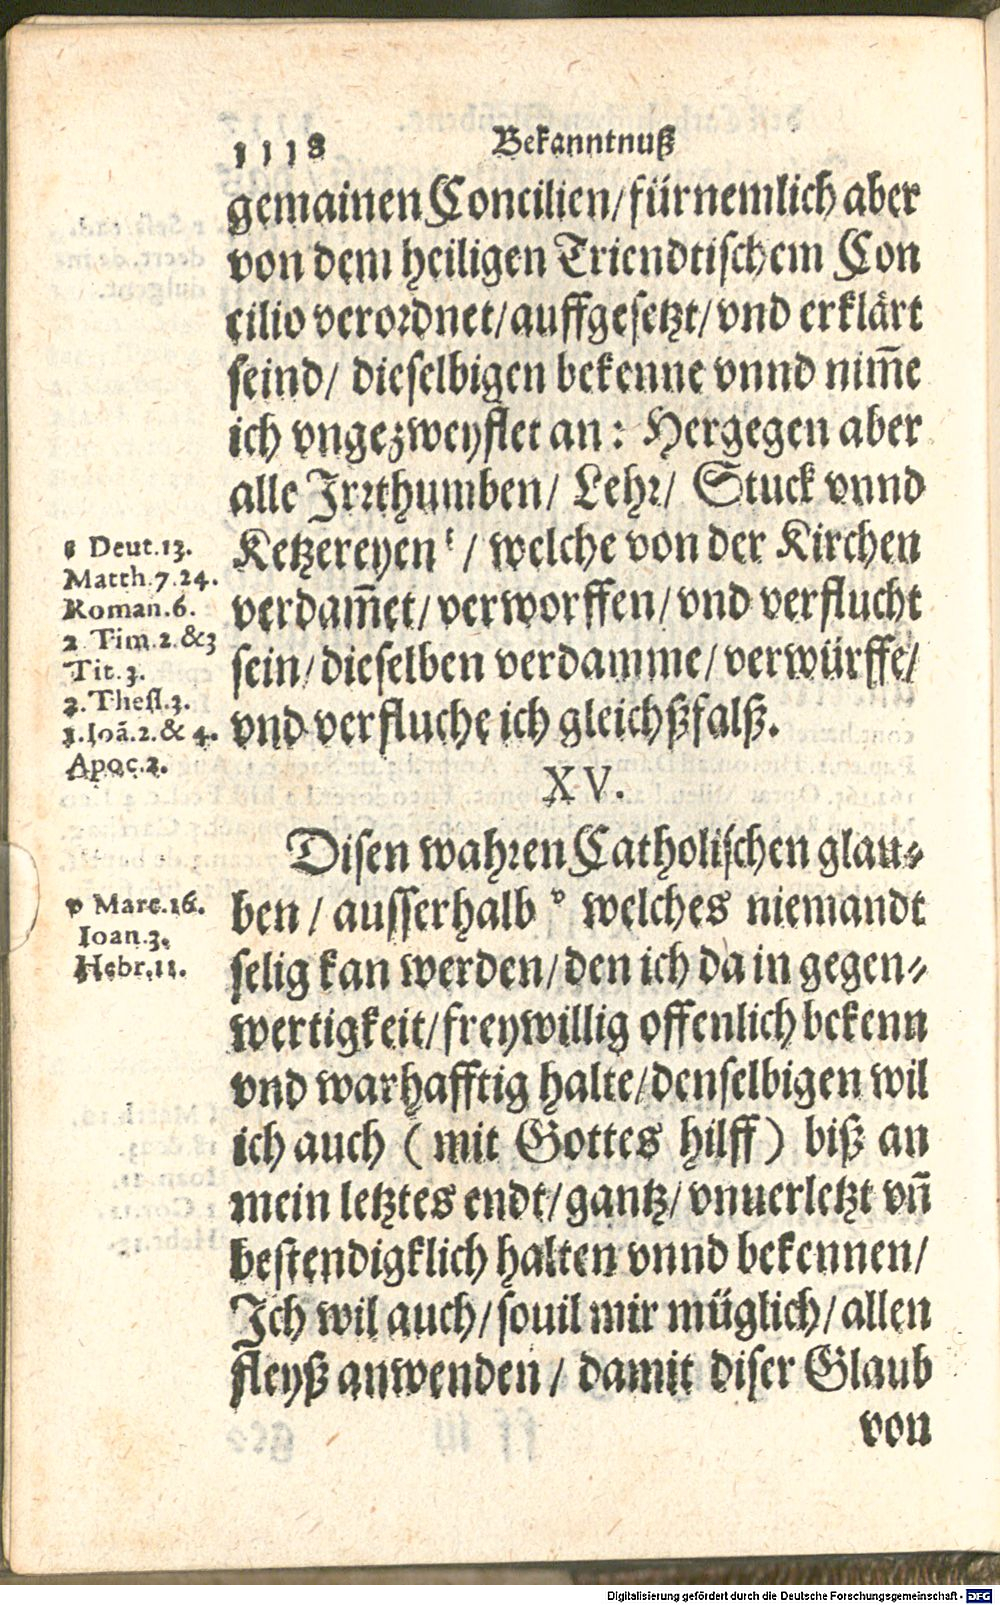 1118 Bekanntnuß
gemainen Concilien/ fürnemlich aber
von dem heiligen Triendtischem Con
cilio verordnet/ auffgesetzt/ vnd erklärt
seind/ dieselbigen bekenne vnnd nim̄e
ich vngezweyflet an: Hergegen aber
alle Irrthumben/ Lehr/ Stuck vnnd
Ketzereyen ᵗ/ welche von der Kirchen
verdam̄et/ verworffen/ vnd verflucht
sein/ dieselben verdamme/ verwürffe/
vnd verfluche ich gleichßfalß.
t Deut.13.
Matth.7.24.
Roman.6.
2 Tim.2.&3
Tit.3.
2.Thess.3.
1.Ioā.2.& 4.
Apoc.2.
XV.
Disen wahren Catholischen glau-
ben/ ausserhalb ᵛ welches niemandt
selig kan werden/ den ich da in gegen-
wertigkeit/ freywillig offenlich bekenn
vnd warhafftig halte/ denselbigen wil
ich auch (mit Gottes hilff) biß an
mein letztes endt/ gantz/ vnuerletzt vn̄
bestendigklich halten vnnd bekennen/
Ich wil auch/ souil mir müglich/ allen
fleyß anwenden/ damit diser Glaub
von
v Marc.16.
Ioan.3.
Hebr.11.
Digitalisierung gefördert durch die Deutsche Forschungsgemeinschaft - DFG